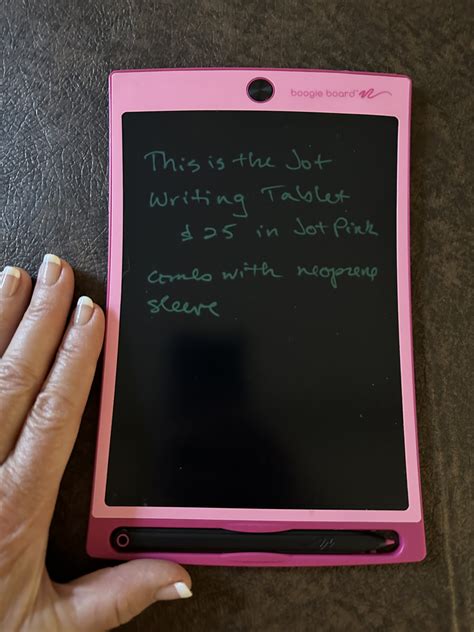 boogie board™
This is the Jot
Writing Tablet
$25 in Jot Pink
comes with neoprene
sleeve